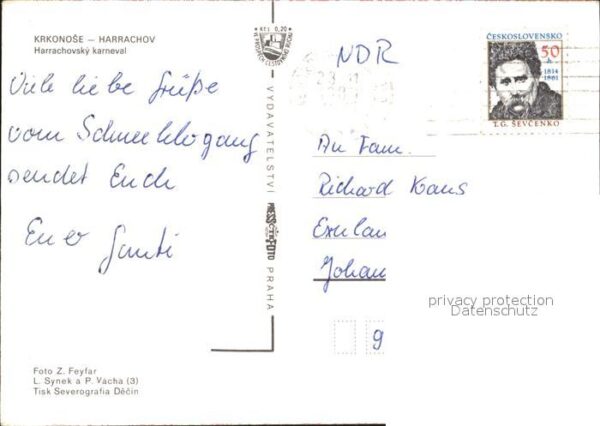 KRKONOŠE — HARRACHOV
Harrachovský karneval
Viele liebe Grüße
vom Schneeklogang
sendet Euch
Euer
Kčs 0,20
VYDAVATELSTVÍ PRESSFOTO PRAHA
NDR
ČESKOSLOVENSKO
50
h
1814
1861
T. G. ŠEVČENKO
An Fam.
Richard Kaus
Johan
9
privacy protection
Datenschutz
Foto Z. Feyfar
L. Synek a P. Vácha (3)
Tisk Severografia Děčín